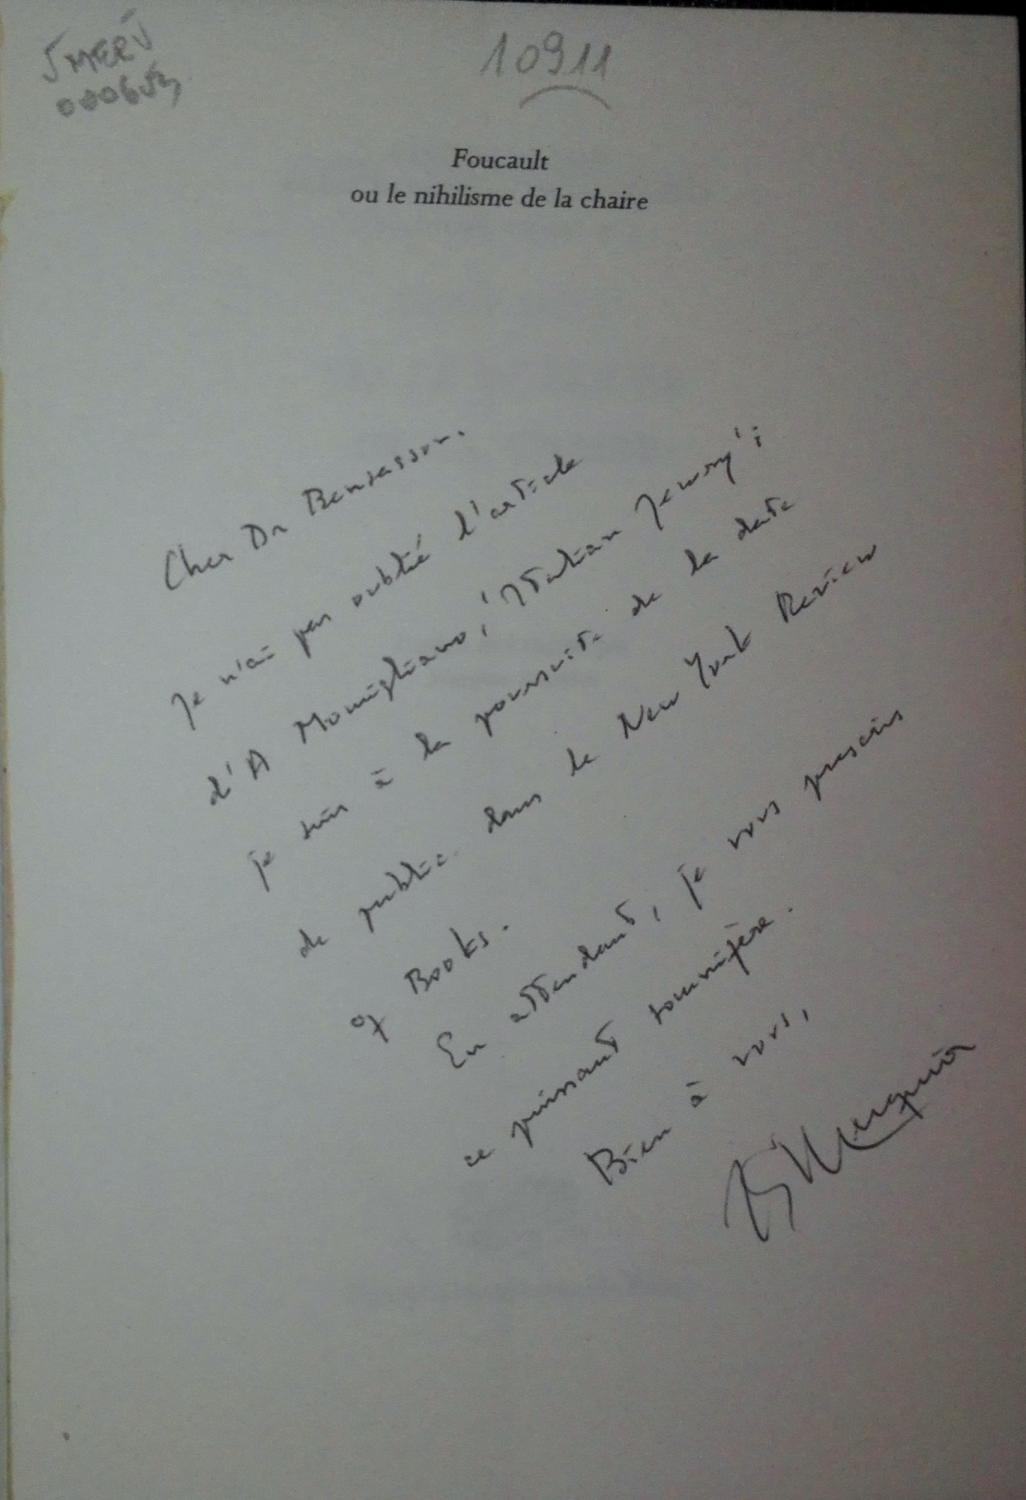 10911
Foucault
ou le nihilisme de la chaire
Cher Dr Bensasson.
Je n'ai pas oublié l'article
d'A Momigliano, 'Italian Jewry';
je suis à la poursuite de la date
de public. dans le New York Review
of Books.
En attendant, je vous prescris
ce puissant somnifère.
Bien à vous,
JG Merquior